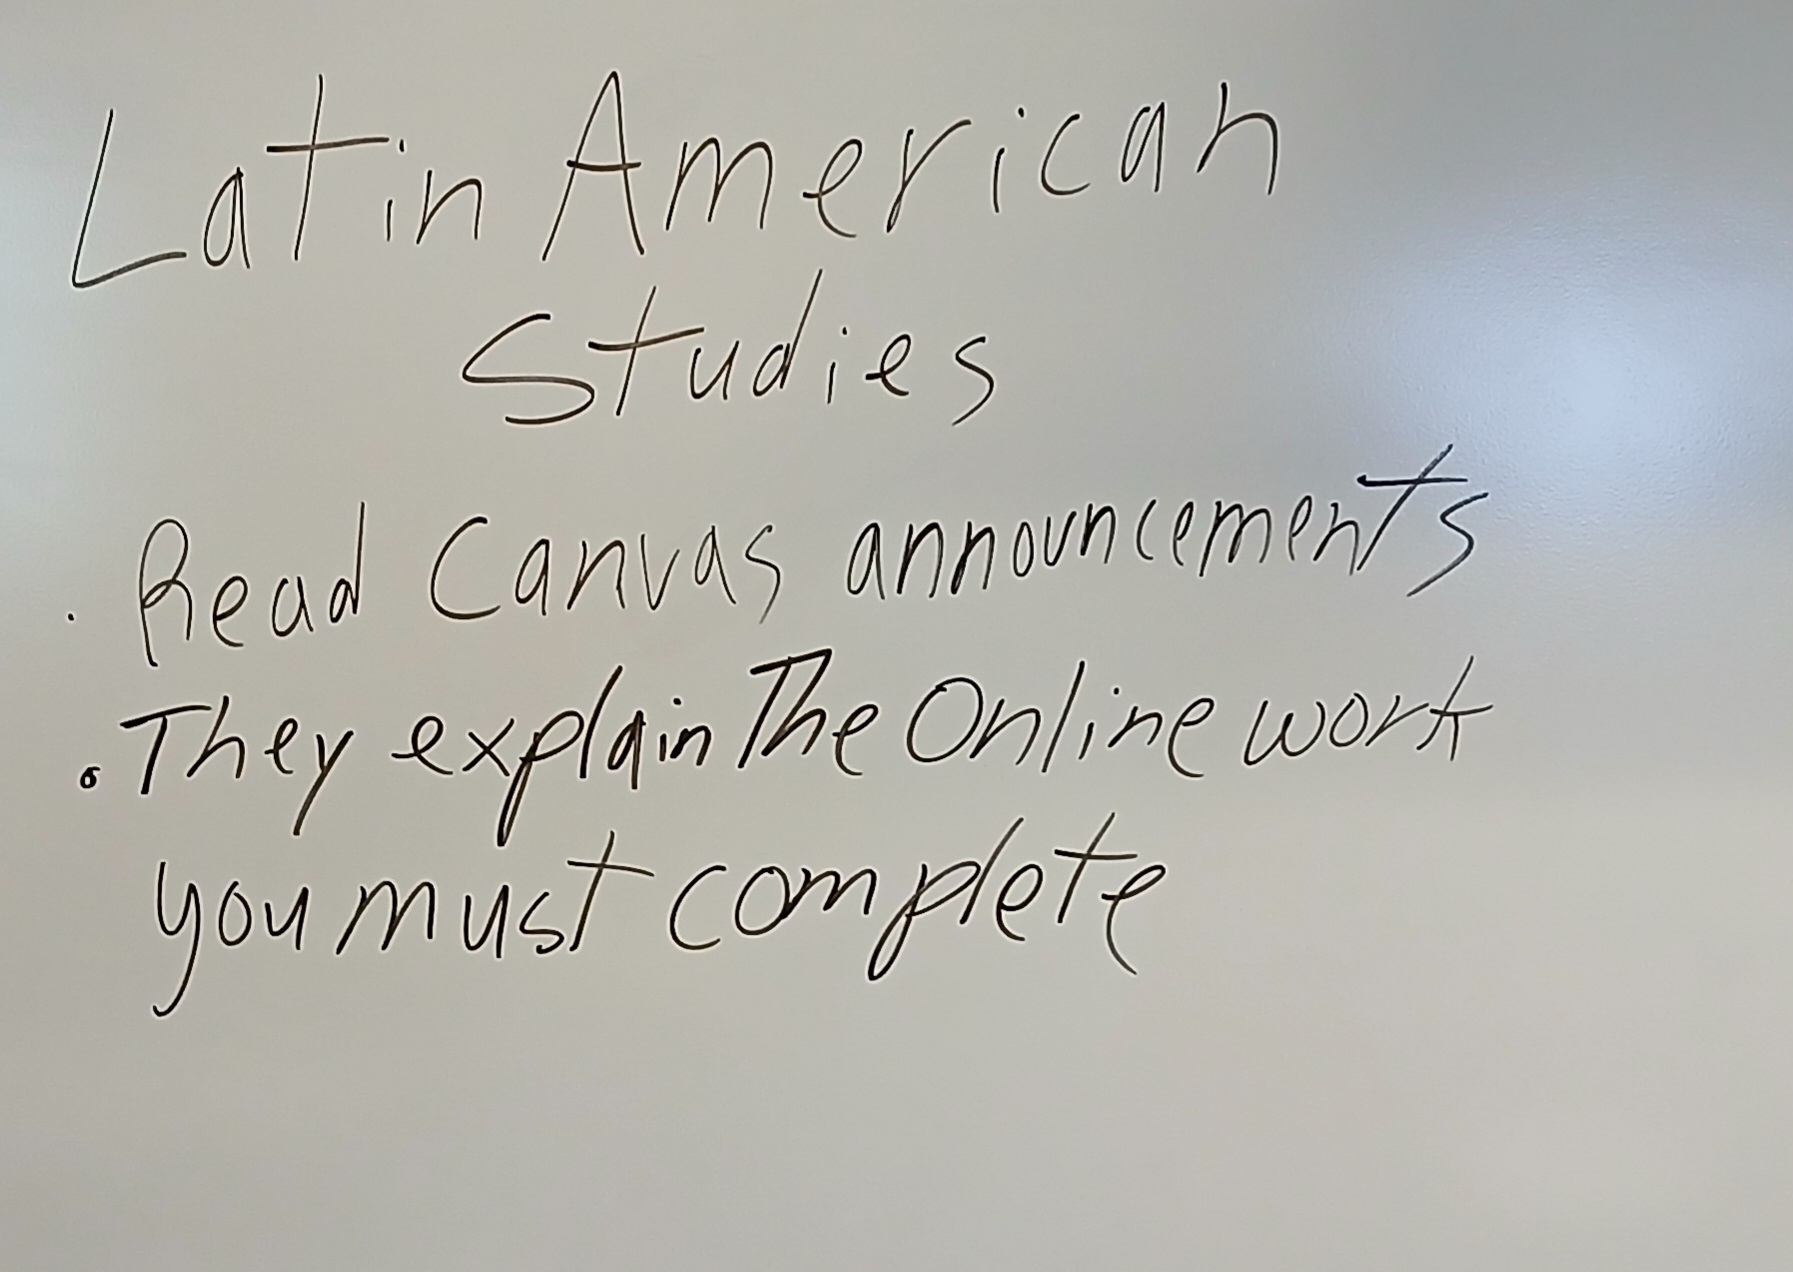 Latin American
Studies
· Read Canvas announcements
• They explain The Online work
you must complete